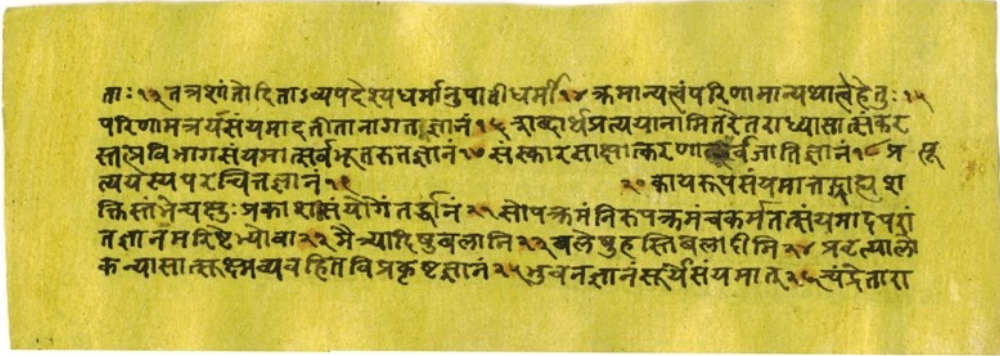 ताः १३ तत्र शांतोदिताऽव्यपदेश्यधर्मानुपाती धर्मी १४ क्रमान्यत्वं परिणामान्यथात्वे हेतुः १५
परिणामत्रयसंयमादतीतानागतज्ञानं १६ शब्दार्थप्रत्ययानामितरेतराध्यासात्संकर
स्तत्प्रविभागसंयमात्सर्वभूतरुतज्ञानं १७ संस्कारसाक्षात्करणात्पूर्वजातिज्ञानं १८ प्र सू
त्ययस्य परचित्तज्ञानं १९ २० कायरूपसंयमात्तद्ग्राह्यश
क्तिस्तंभे चक्षुःप्रकाशासंयोगेंतर्द्धानं २१ सोपक्रमं निरुपक्रमं च कर्म तत्संयमादपरां
तज्ञानमरिष्टेभ्यो वा २२ मैत्र्यादिषु बलानि २३ बलेषु हस्तिबलादीनि २४ प्रवृत्त्यालो
कन्यासात्सूक्ष्मव्यवहितविप्रकृष्टज्ञानं २५ भुवनज्ञानं सूर्ये संयमात् २६ चंद्रे तारा